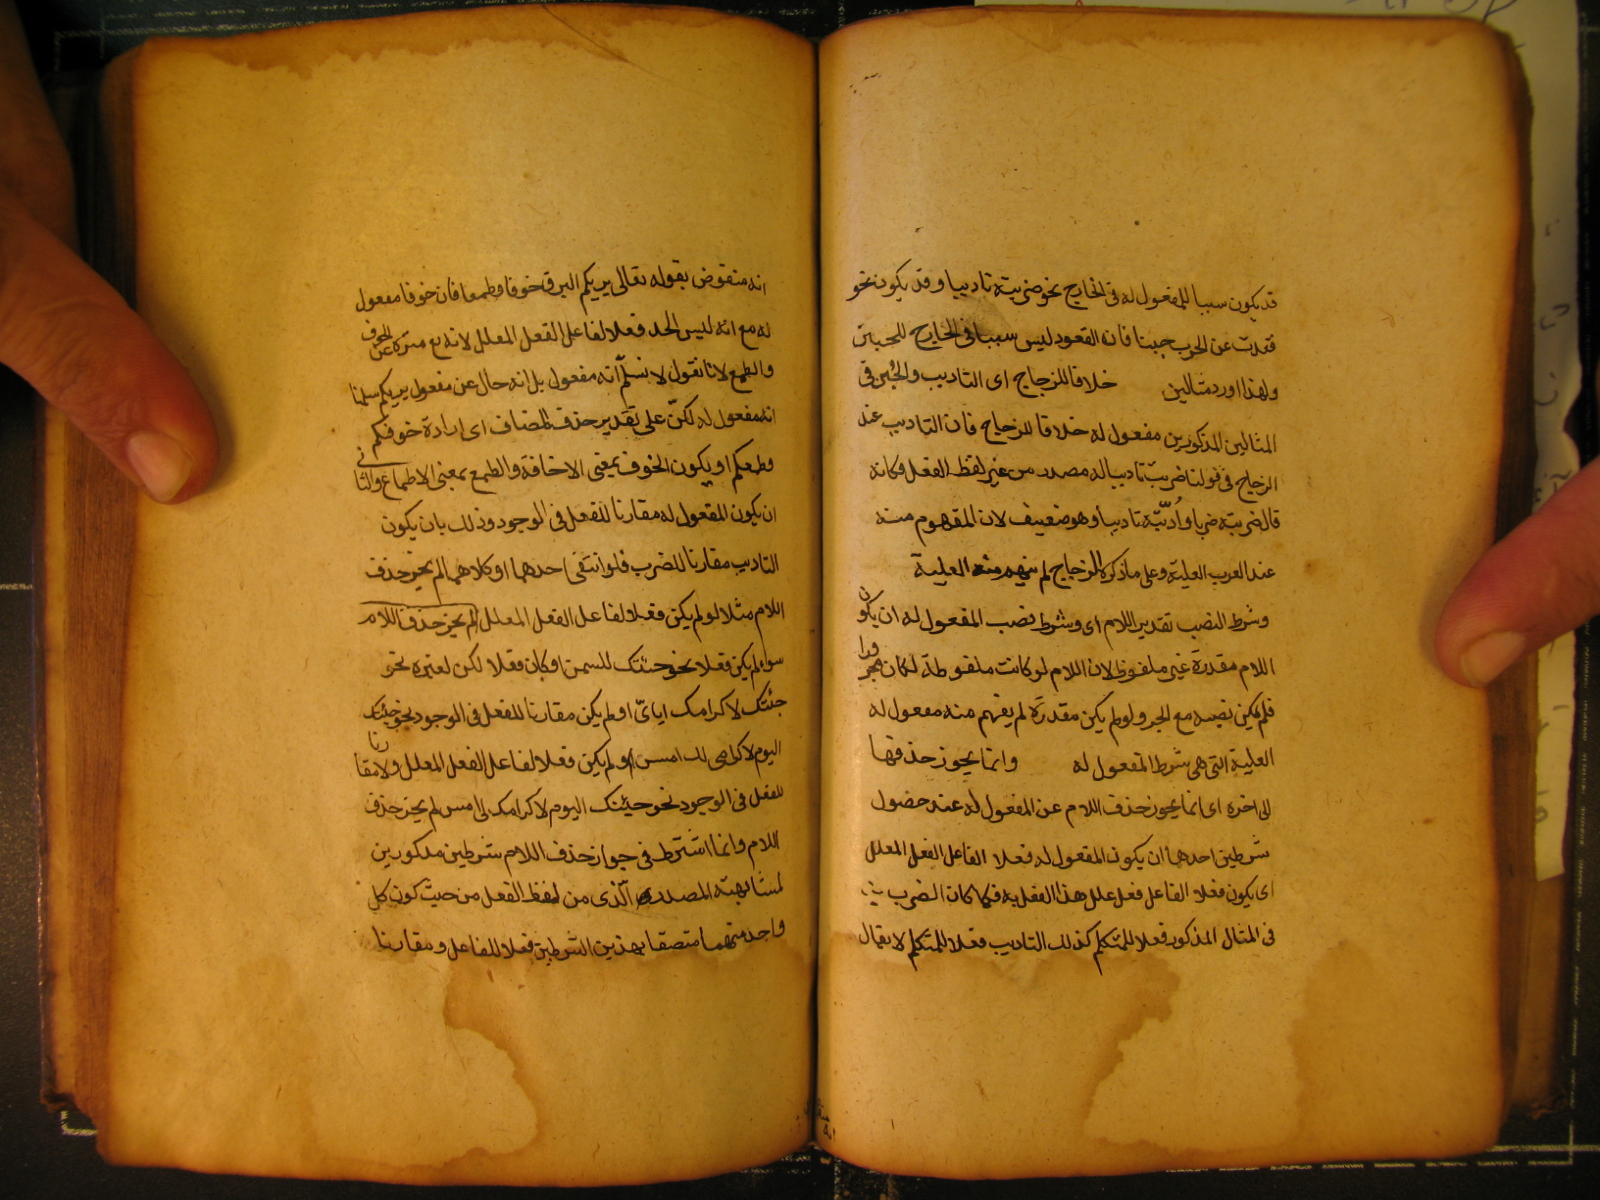 قد يكون سببا للمفعول له فى الخارج نحو ضربته تاديبا وقد يكون نحو
قعدت عن الحرب جبنا فان القعود ليس سببا فى الخارج للجبن
ولهذا اورد مثالين خلافا للزجاج اى التاديب والجبن فى
المثالين المذكورين مفعول له خلافا للزجاج فان التاديب عند
الزجاج فى قولنا ضربت تاديبا له مصدر من غير لفظ الفعل فكانه
قال ضربته ضربا وادّبته تاديبا وهو ضعيف لان المفهوم منه
عند العرب العلية وعلى ما ذكره الزجاج لم يفهم منه العلية
وشرط النصب تقدير اللام اى وشرط نصب المفعول له ان يكون
اللام مقدرة غير ملفوظ لان اللام لو كانت ملفوظة لكان مجرورا
فلم يمكن نصبه مع الجر ولو لم يكن مقدرة لم يفهم منه مفعول له
العلية التى هى شرط المفعول له وانما يجوز حذفها
الى اخره اى انما يجوز حذف اللام عن المفعول له عند حصول
شرطين احدهما ان يكون المفعول له فعلا الفاعل الفعل المعلل
اى يكون فعلا الفاعل فعل علل هذا الفعل به فكما كان الضرب
فى المثال المذكور فعلا للمتكلم كذلك التاديب فعلا للمتكلم لا يقال
انه منقوض بقوله تعالى يريكم البرق خوفا وطمعا فان خوفا مفعول
له مع انه ليس لحد فعلا لفاعل الفعل المعلل لانه تع منزه عن الخوف
والطمع لانا نقول لا نسلم انه مفعول بل انه حال عن مفعول يريكم سلمنا
انه مفعول له لكنّ على تقدير حذف المضاف اى ارادة خوفكم
وطمعكم او يكون الخوف بمعنى الاخافة والطمع بمعنى الاطماع والثانى
ان يكون المفعول له مقارنا للفعل فى الوجود وذلك بان يكون
التاديب مقارنا للضرب فلو انتفى احدهما او كلاهما لم يجز حذف
اللام مثلا لو لم يكن فعلا لفاعل الفعل المعلل لم يجز حذف اللام
سواء لم يكن فعلا نحو جئتك للسمن او كان فعلا لكن لغيره نحو
جئتك لاكرامك اياىّ او لم يكن مقارنا للفعل فى الوجود نحو جئتك
اليوم لاكرامى لك امس او لم يكن فعلا لفاعل الفعل المعلل ولا مقارنا
للفعل فى الوجود نحو جئتك اليوم لاكرامك لى امس لم يجز حذف
اللام وانما اشترط فى جواز حذف اللام شرطين مذكورين
لمشابهته المصدر الّذى من لفظ الفعل من حيث كون كل
واحد منهما متصفا بهذين الشرطين فعلا للفاعل ومقارنا